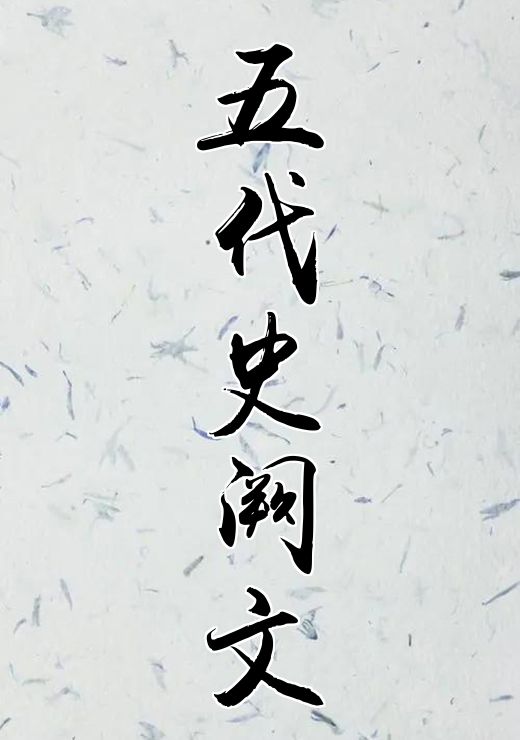 五代史阙文